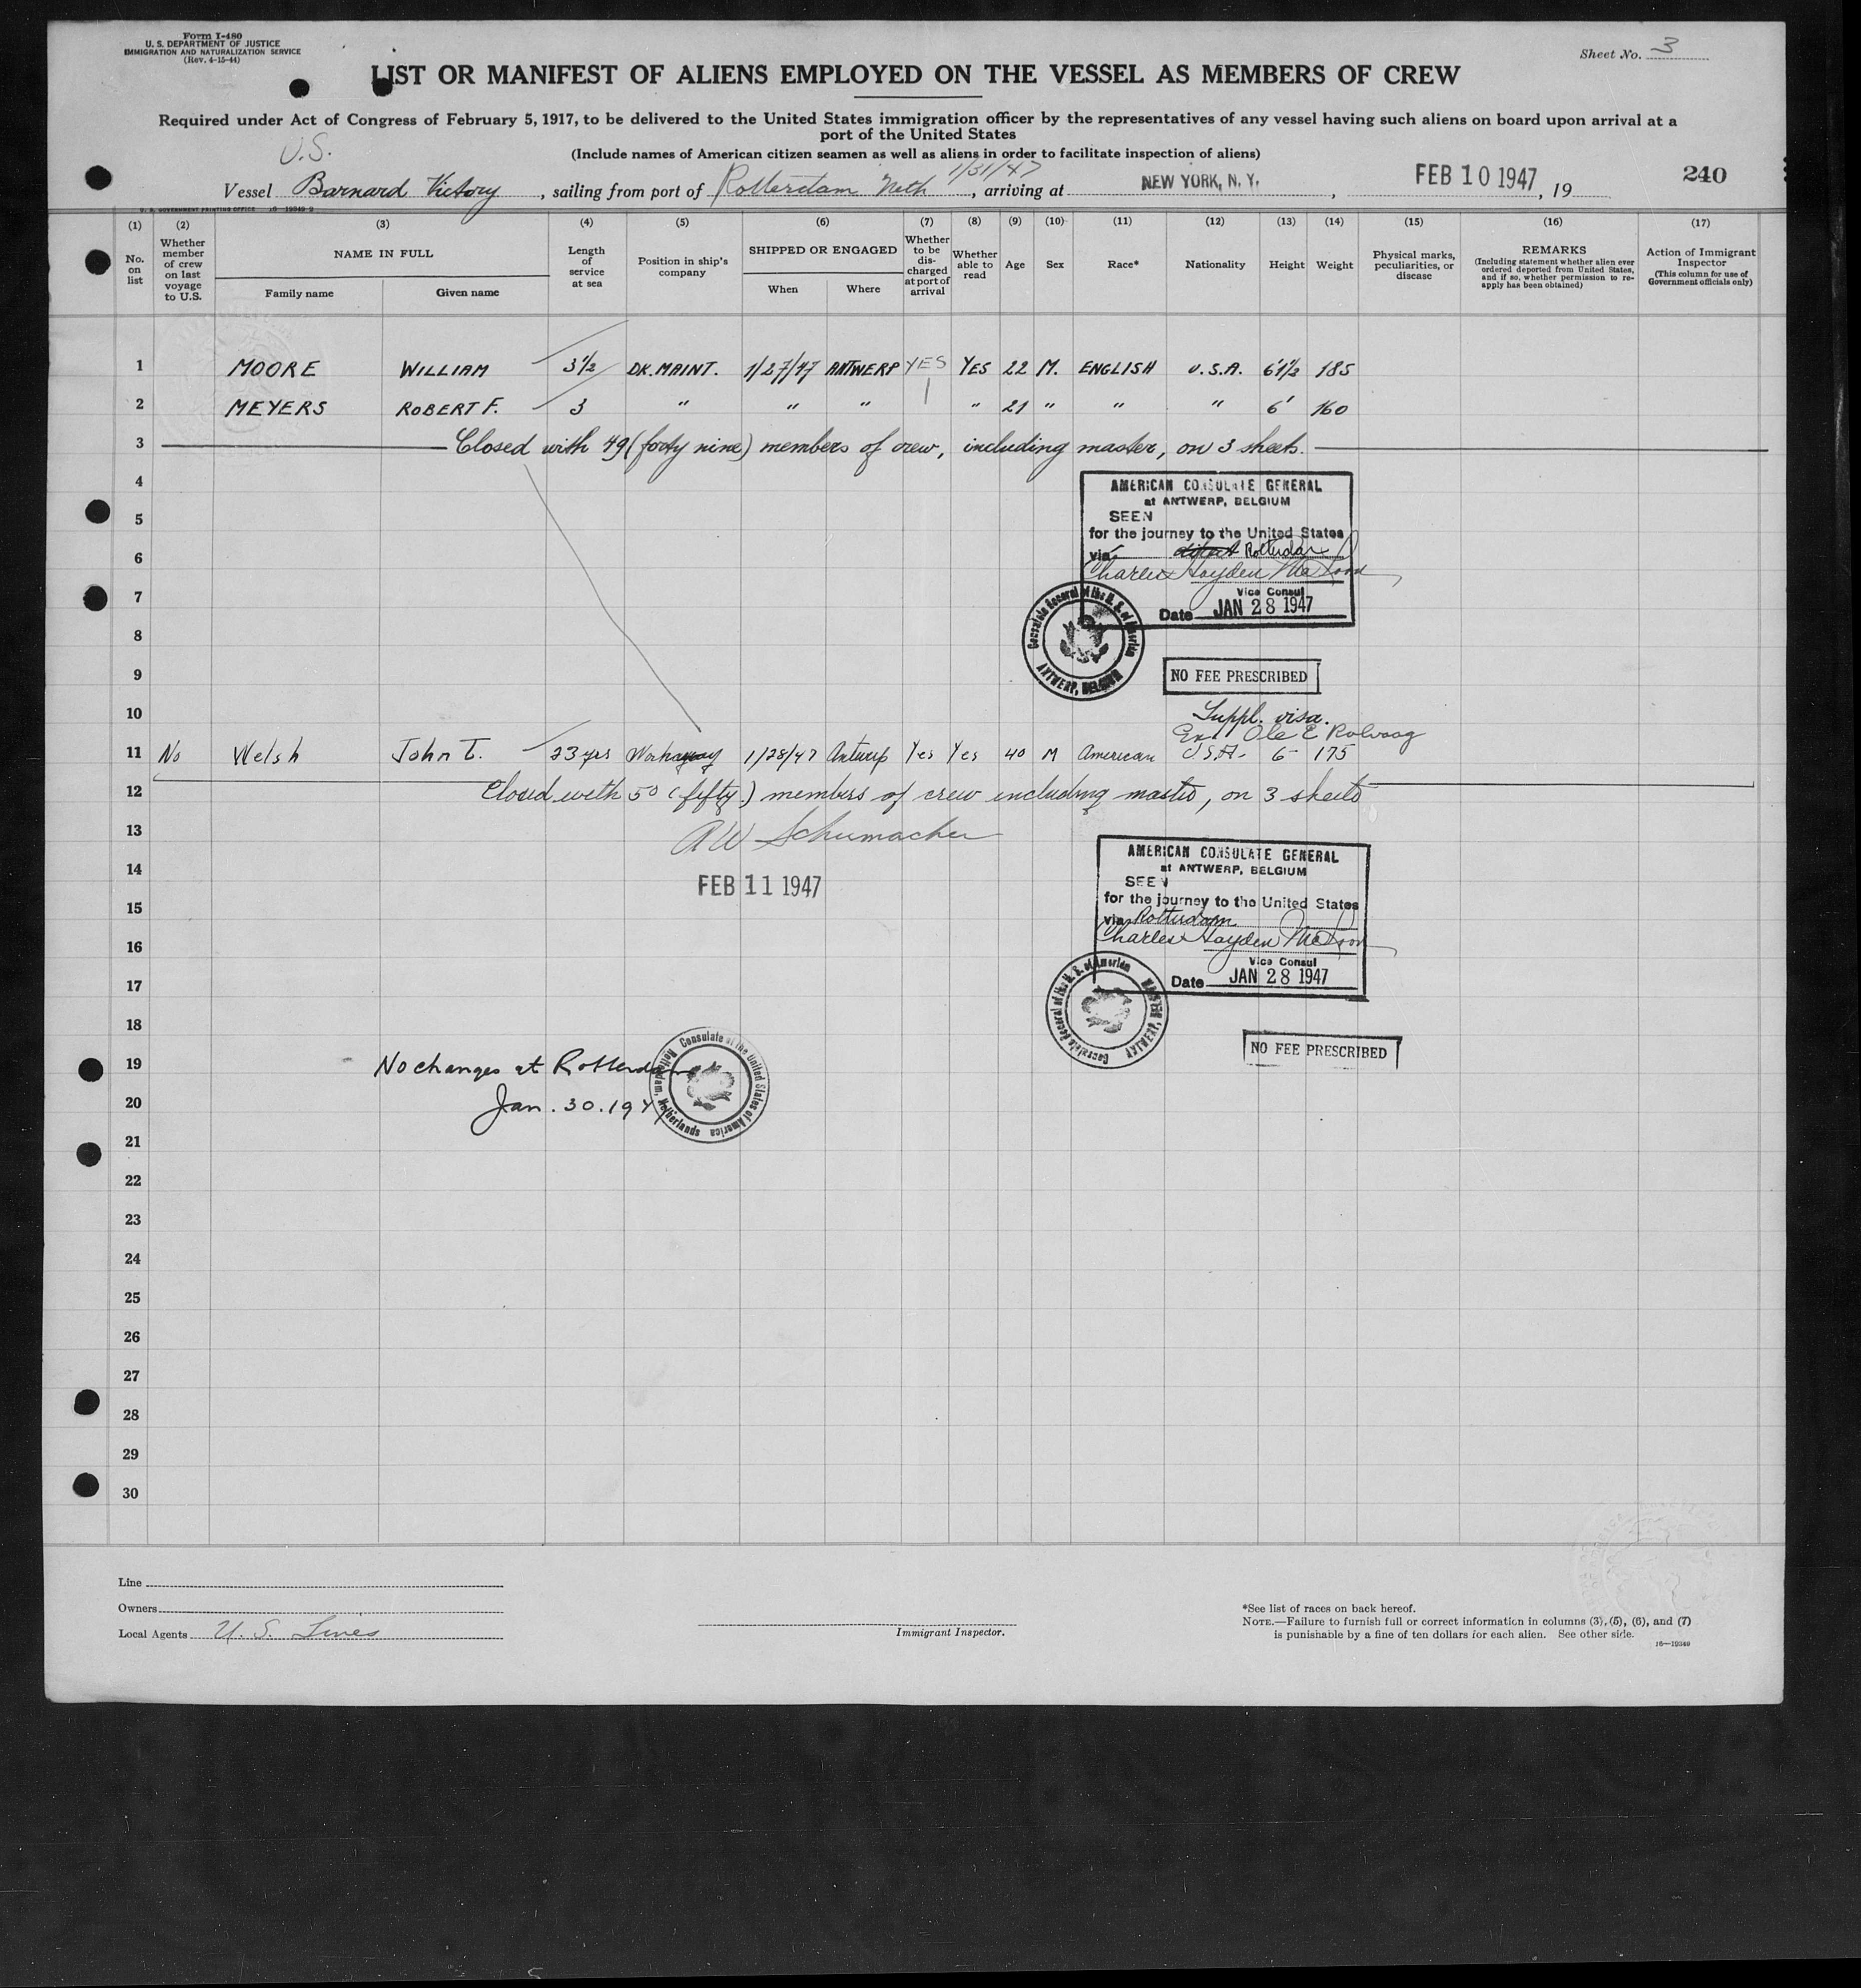 Form I-480
U. S. DEPARTMENT OF JUSTICE
IMMIGRATION AND NATURALIZATION SERVICE
(Rev. 4-15-44)
Sheet No. 3
LIST OR MANIFEST OF ALIENS EMPLOYED ON THE VESSEL AS MEMBERS OF CREW
Required under Act of Congress of February 5, 1917, to be delivered to the United States immigration officer by the representatives of any vessel having such aliens on board upon arrival at a
port of the United States
U.S.
(Include names of American citizen seamen as well as aliens in order to facilitate inspection of aliens)
1/31/47
Vessel Barnard Victory, sailing from port of Rotterdam Neth, arriving at NEW YORK, N. Y., FEB 10 1947, 19
240
U. S. GOVERNMENT PRINTING OFFICE 16-19349-2
(1) (2) (3) (4) (5) (6) (7) (8) (9) (10) (11) (12) (13) (14) (15) (16) (17)
No. on list
Whether member of crew on last voyage to U.S.
NAME IN FULL
Family name
Given name
Length of service at sea
Position in ship's company
SHIPPED OR ENGAGED
When
Where
Whether to be discharged at port of arrival
Whether able to read
Age
Sex
Race*
Nationality
Height
Weight
Physical marks, peculiarities, or disease
REMARKS
(Including statement whether alien ever ordered deported from United States, and if so, whether permission to reapply has been obtained)
Action of Immigrant Inspector
(This column for use of Government officials only)
1 MOORE WILLIAM 3½ DK. MAINT. 1/27/47 ANTWERP YES YES 22 M. ENGLISH U.S.A. 6'1½ 185
2 MEYERS ROBERT F. 3 " " " " 21 " " " 6' 160
3 Closed with 49 (forty nine) members of crew, including master, on 3 sheets.
4
AMERICAN CONSULATE GENERAL
at ANTWERP, BELGIUM
5
SEEN
for the journey to the United States
6
via direct Rotterdam
Charles Hayden Matson
Vice Consul
7
Date JAN 28 1947
8
Consulate General of the U. S. of America
ANTWERP, BELGIUM
9
NO FEE PRESCRIBED
10
Suppl. visa.
Ole E Rolvaag
11 No Welsh John T. 23 yrs Workaway 1/28/47 Antwerp Yes Yes 40 M American U.S.A. 6 175
12 Closed with 50 (fifty) members of crew including master, on 3 sheets
13 AW Schumacher
AMERICAN CONSULATE GENERAL
14
at ANTWERP, BELGIUM
FEB 11 1947
SEEN
15
for the journey to the United States
via Rotterdam
16
Charles Hayden Matson
Vice Consul
17
Date JAN 28 1947
Consulate General of the U. S. of America
ANTWERP, BELGIUM
18
NO FEE PRESCRIBED
19 No changes at Rotterdam
20 Jan. 30. 1947
Consulate of the United States of America
Rotterdam, Netherlands
21
22
23
24
25
26
27
28
29
30
Line
Owners
Local Agents U. S. Lines
Immigrant Inspector.
*See list of races on back hereof.
NOTE.—Failure to furnish full or correct information in columns (3), (5), (6), and (7)
is punishable by a fine of ten dollars for each alien. See other side.
16—19349